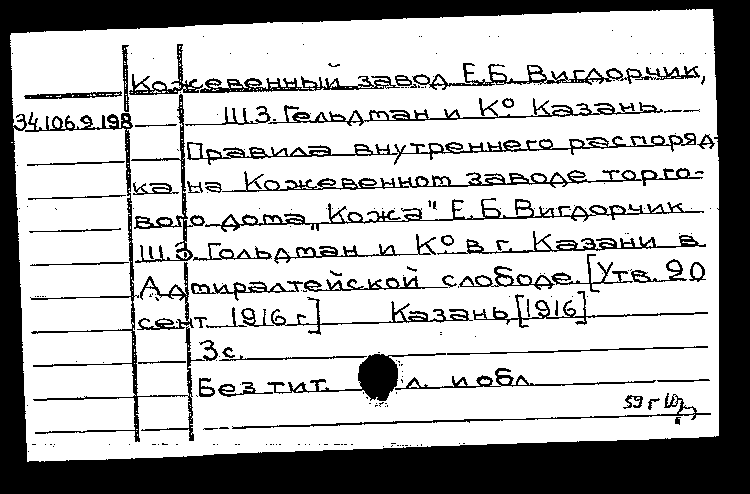 Кожевенный завод Е.Б. Вигдорчик,
34.106.9.198 Ш.З. Гельдман и Кº Казань.
Правила внутреннего распоряд-
ка на Кожевенном заводе торго-
вого дома „Кожа" Е.Б. Вигдорчик
Ш.З. Гольдман и Кº в г. Казани в
Адмиралтейской слободе. [Утв. 20
сент. 1916 г.] Казань, [1916].
3 с.
Без тит. л. и обл.
59 г